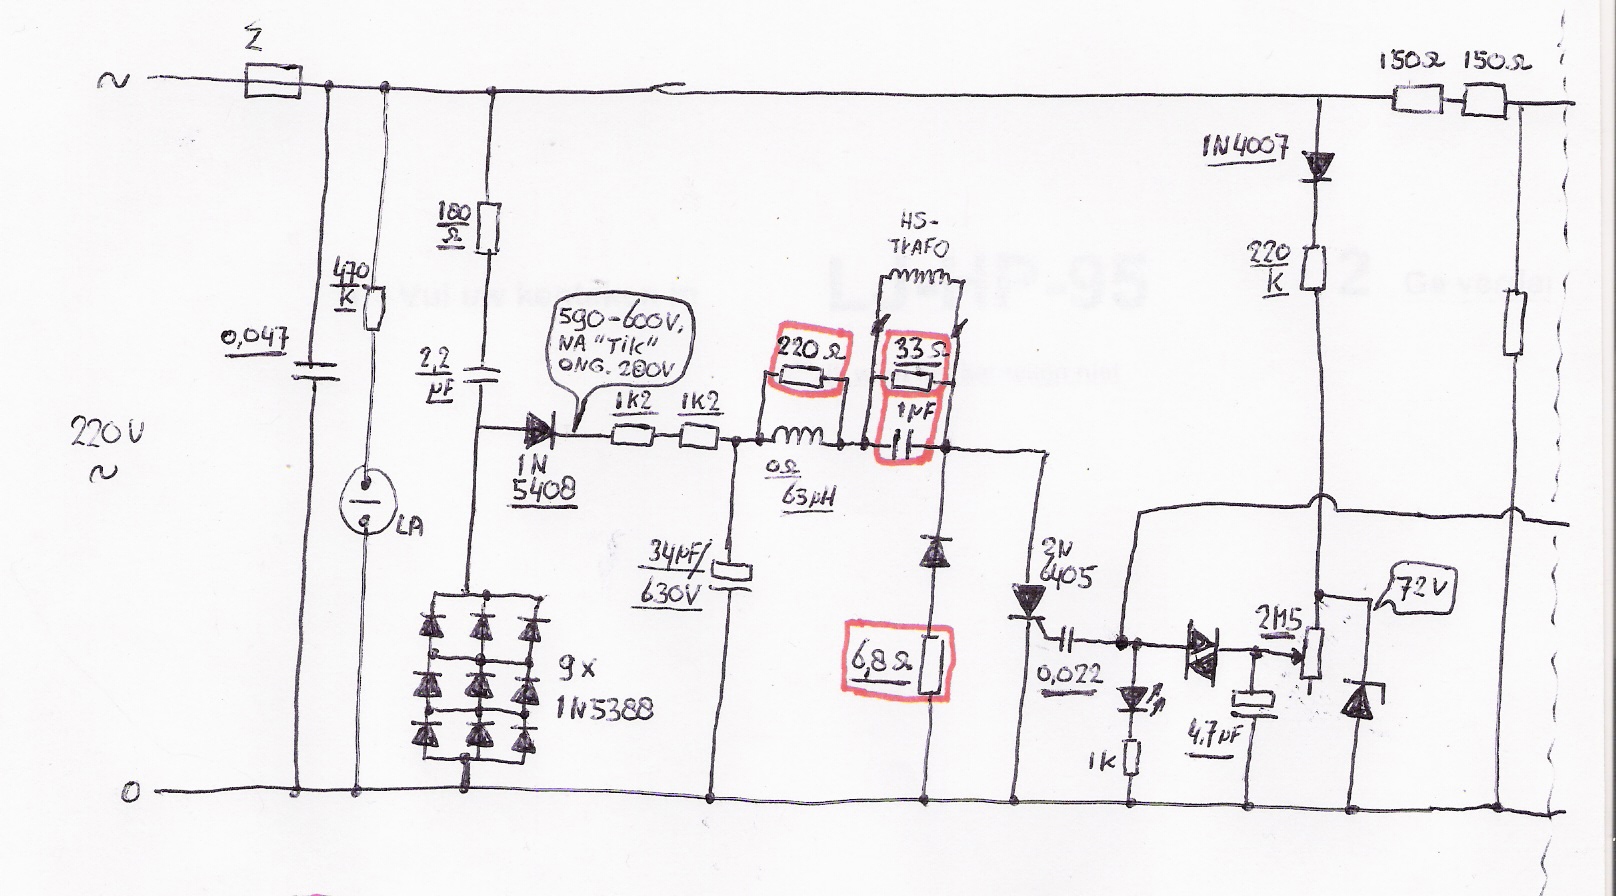 Σ
150Ω 150Ω
~
1N4007
180
Ω
HS-
TRAFO
220
K
470
K
590-600V,
NA "TiK"
ONG. 280V
220Ω
33Ω
0,047
2,2
µF
1K2 1K2
1µF
220V
~
1N
5408
0Ω
63µH
LA
34µF/
630V
2N
6405
72V
2M5
9x
1N5388
6,8Ω
0,022
4,7µF
1K
0